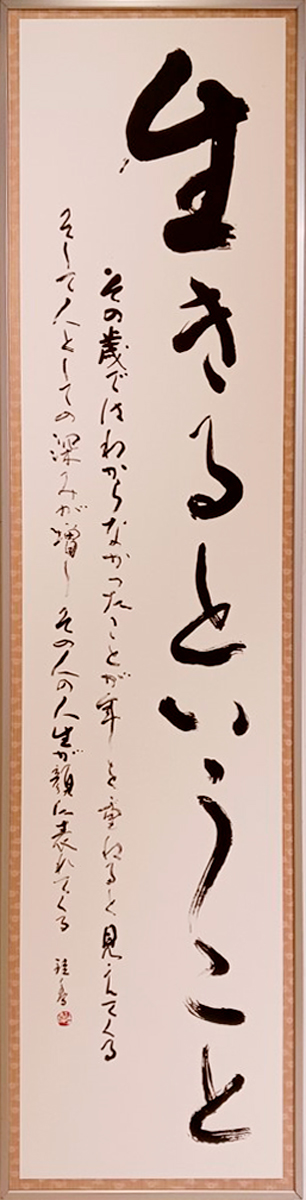 生きるということ
その歳ではわからなかったことが年を重ねると見えてくる
そして人としての深みが増しその人の人生が顔に表れてくる